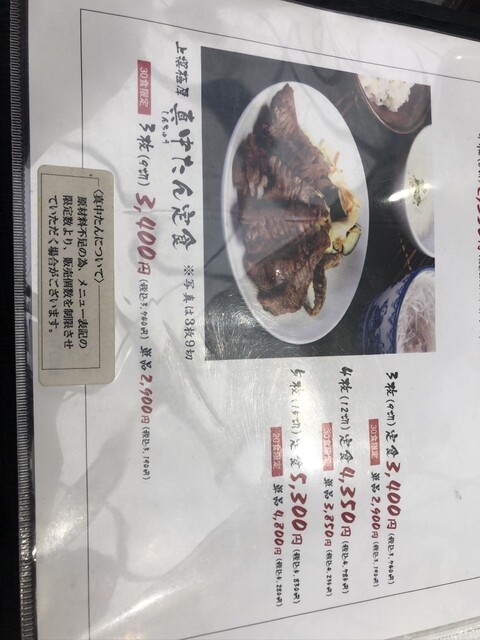 上撰極厚 真中たん定食 ※写真は3枚9切
しんちゅう
30食限定 3枚(9切) 3,400円(税込3,740円) 単品2,900円(税込3,190円)
〈真中たんについて〉
原材料不足の為、メニュー表記の
限定数より、販売個数を制限させ
ていただく場合がございます。
3枚(9切)定食3,400円(税込3,740円)
30食限定 単品2,900円(税込3,190円)
4枚(12切)定食4,350円(税込4,785円)
30食限定 単品3,850円(税込4,235円)
5枚(15切)定食5,300円(税込5,830円)
20食限定 単品4,800円(税込5,280円)